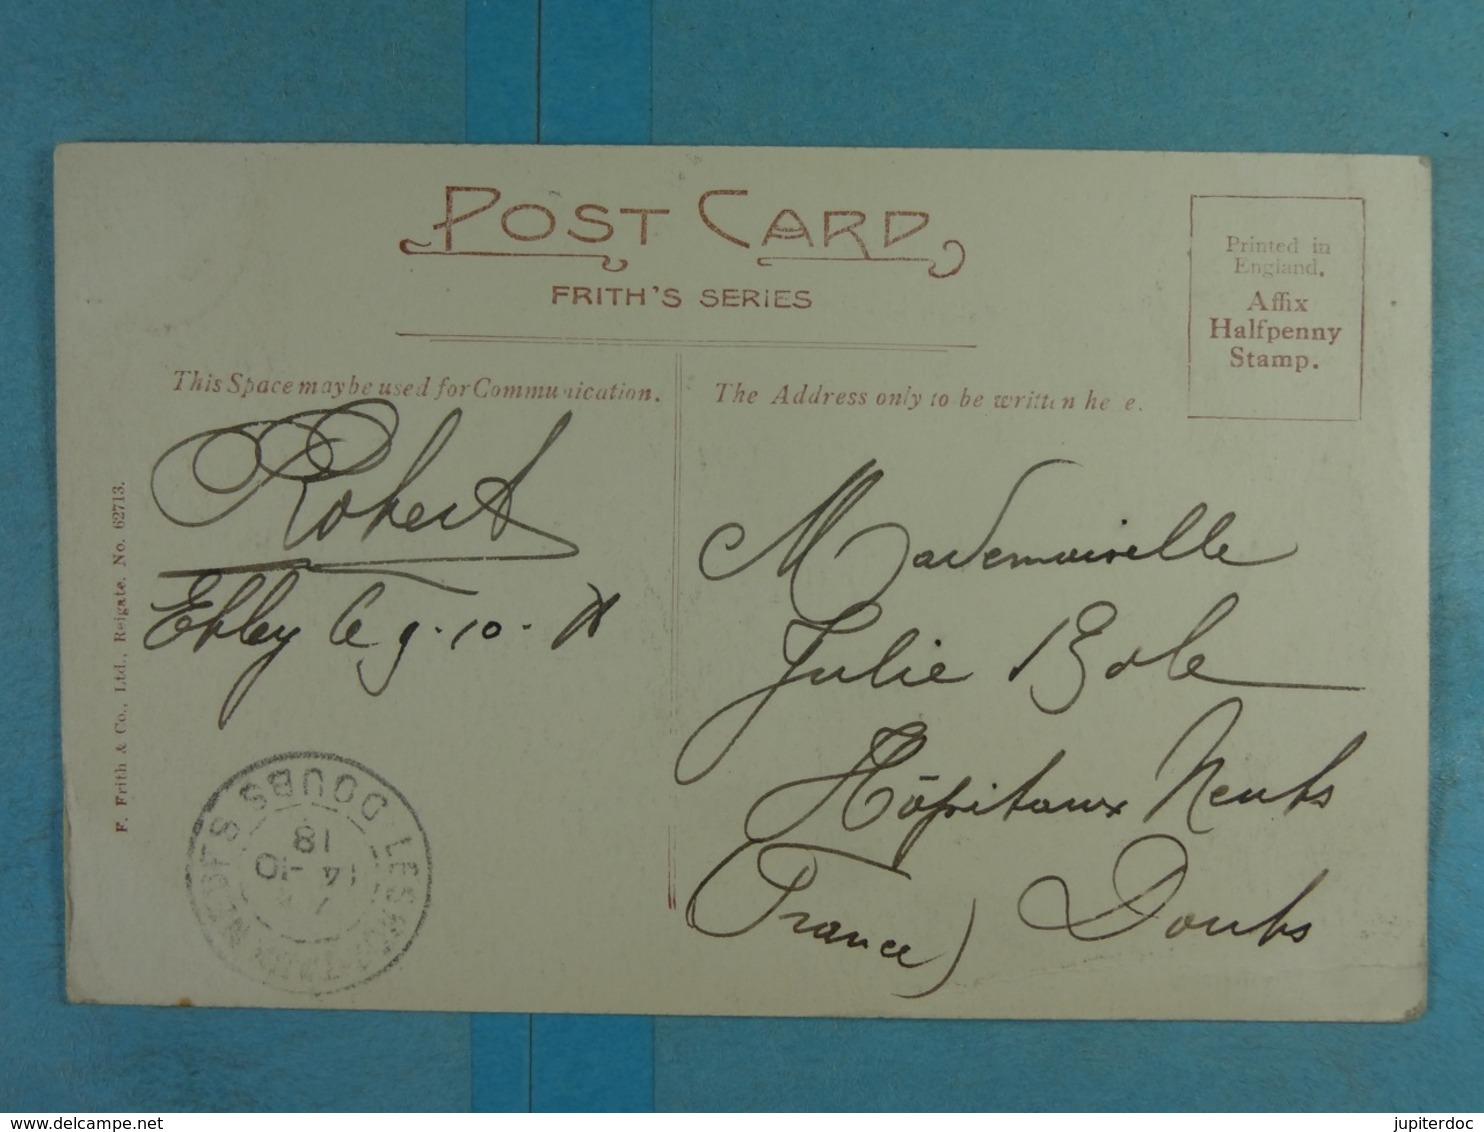 POST CARD
FRITH'S SERIES
Printed in
England.
Affix
Halfpenny
Stamp.
This Space may be used for Communication.
The Address only to be written he e.
Robert
Ebley le 9-10-
Mademoiselle
Julie Bole
Hôpitaux Neufs
Doubs
(France)
F. Frith & Co., Ltd., Reigate. No. 62713.
LES HOPITAUX NEUFS DOUBS
14 -10
18
jupiterdoc
delcampe.net